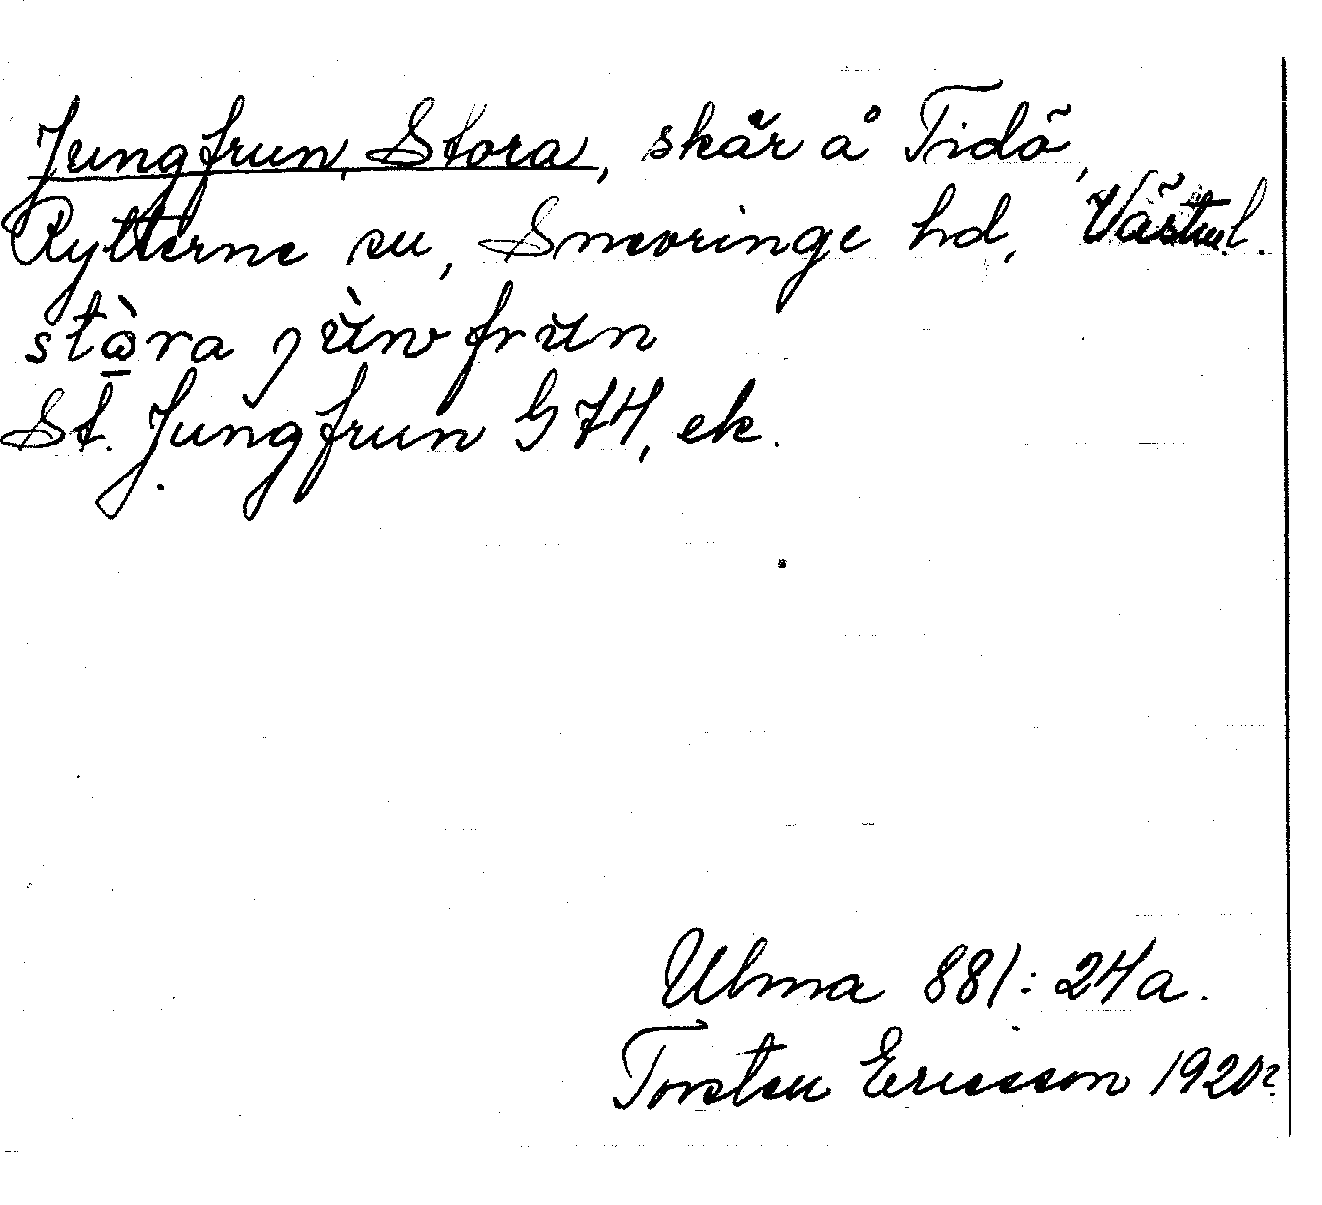 Jungfrun, Stora, skär å Tidö,
Rytterne sn, Snevringe hd, Västml.
störa jùnfrun
St. Jungfrun G 74, ek.
Ulma 881:24a.
Torsten Ericsson 1920?